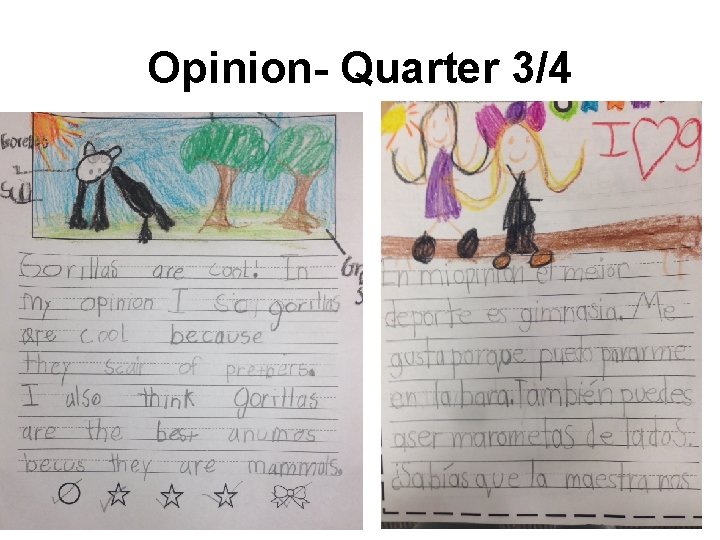 Opinion- Quarter 3/4
Gorillas are cool! In
my opinion I say gorillas
are cool because
they scair of
I also think gorillas
are the best anumos
becus they are mammals.
I ♡ g
En miopinion el mejor
deporte es gimnasia. Me
gusta porque puedo pararme
en la bara. También puedes
aser marometas de lados.
¿Sabías que la maestra nos